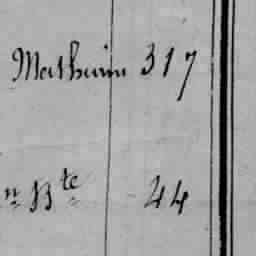 Mathurin 317
n B^te 44